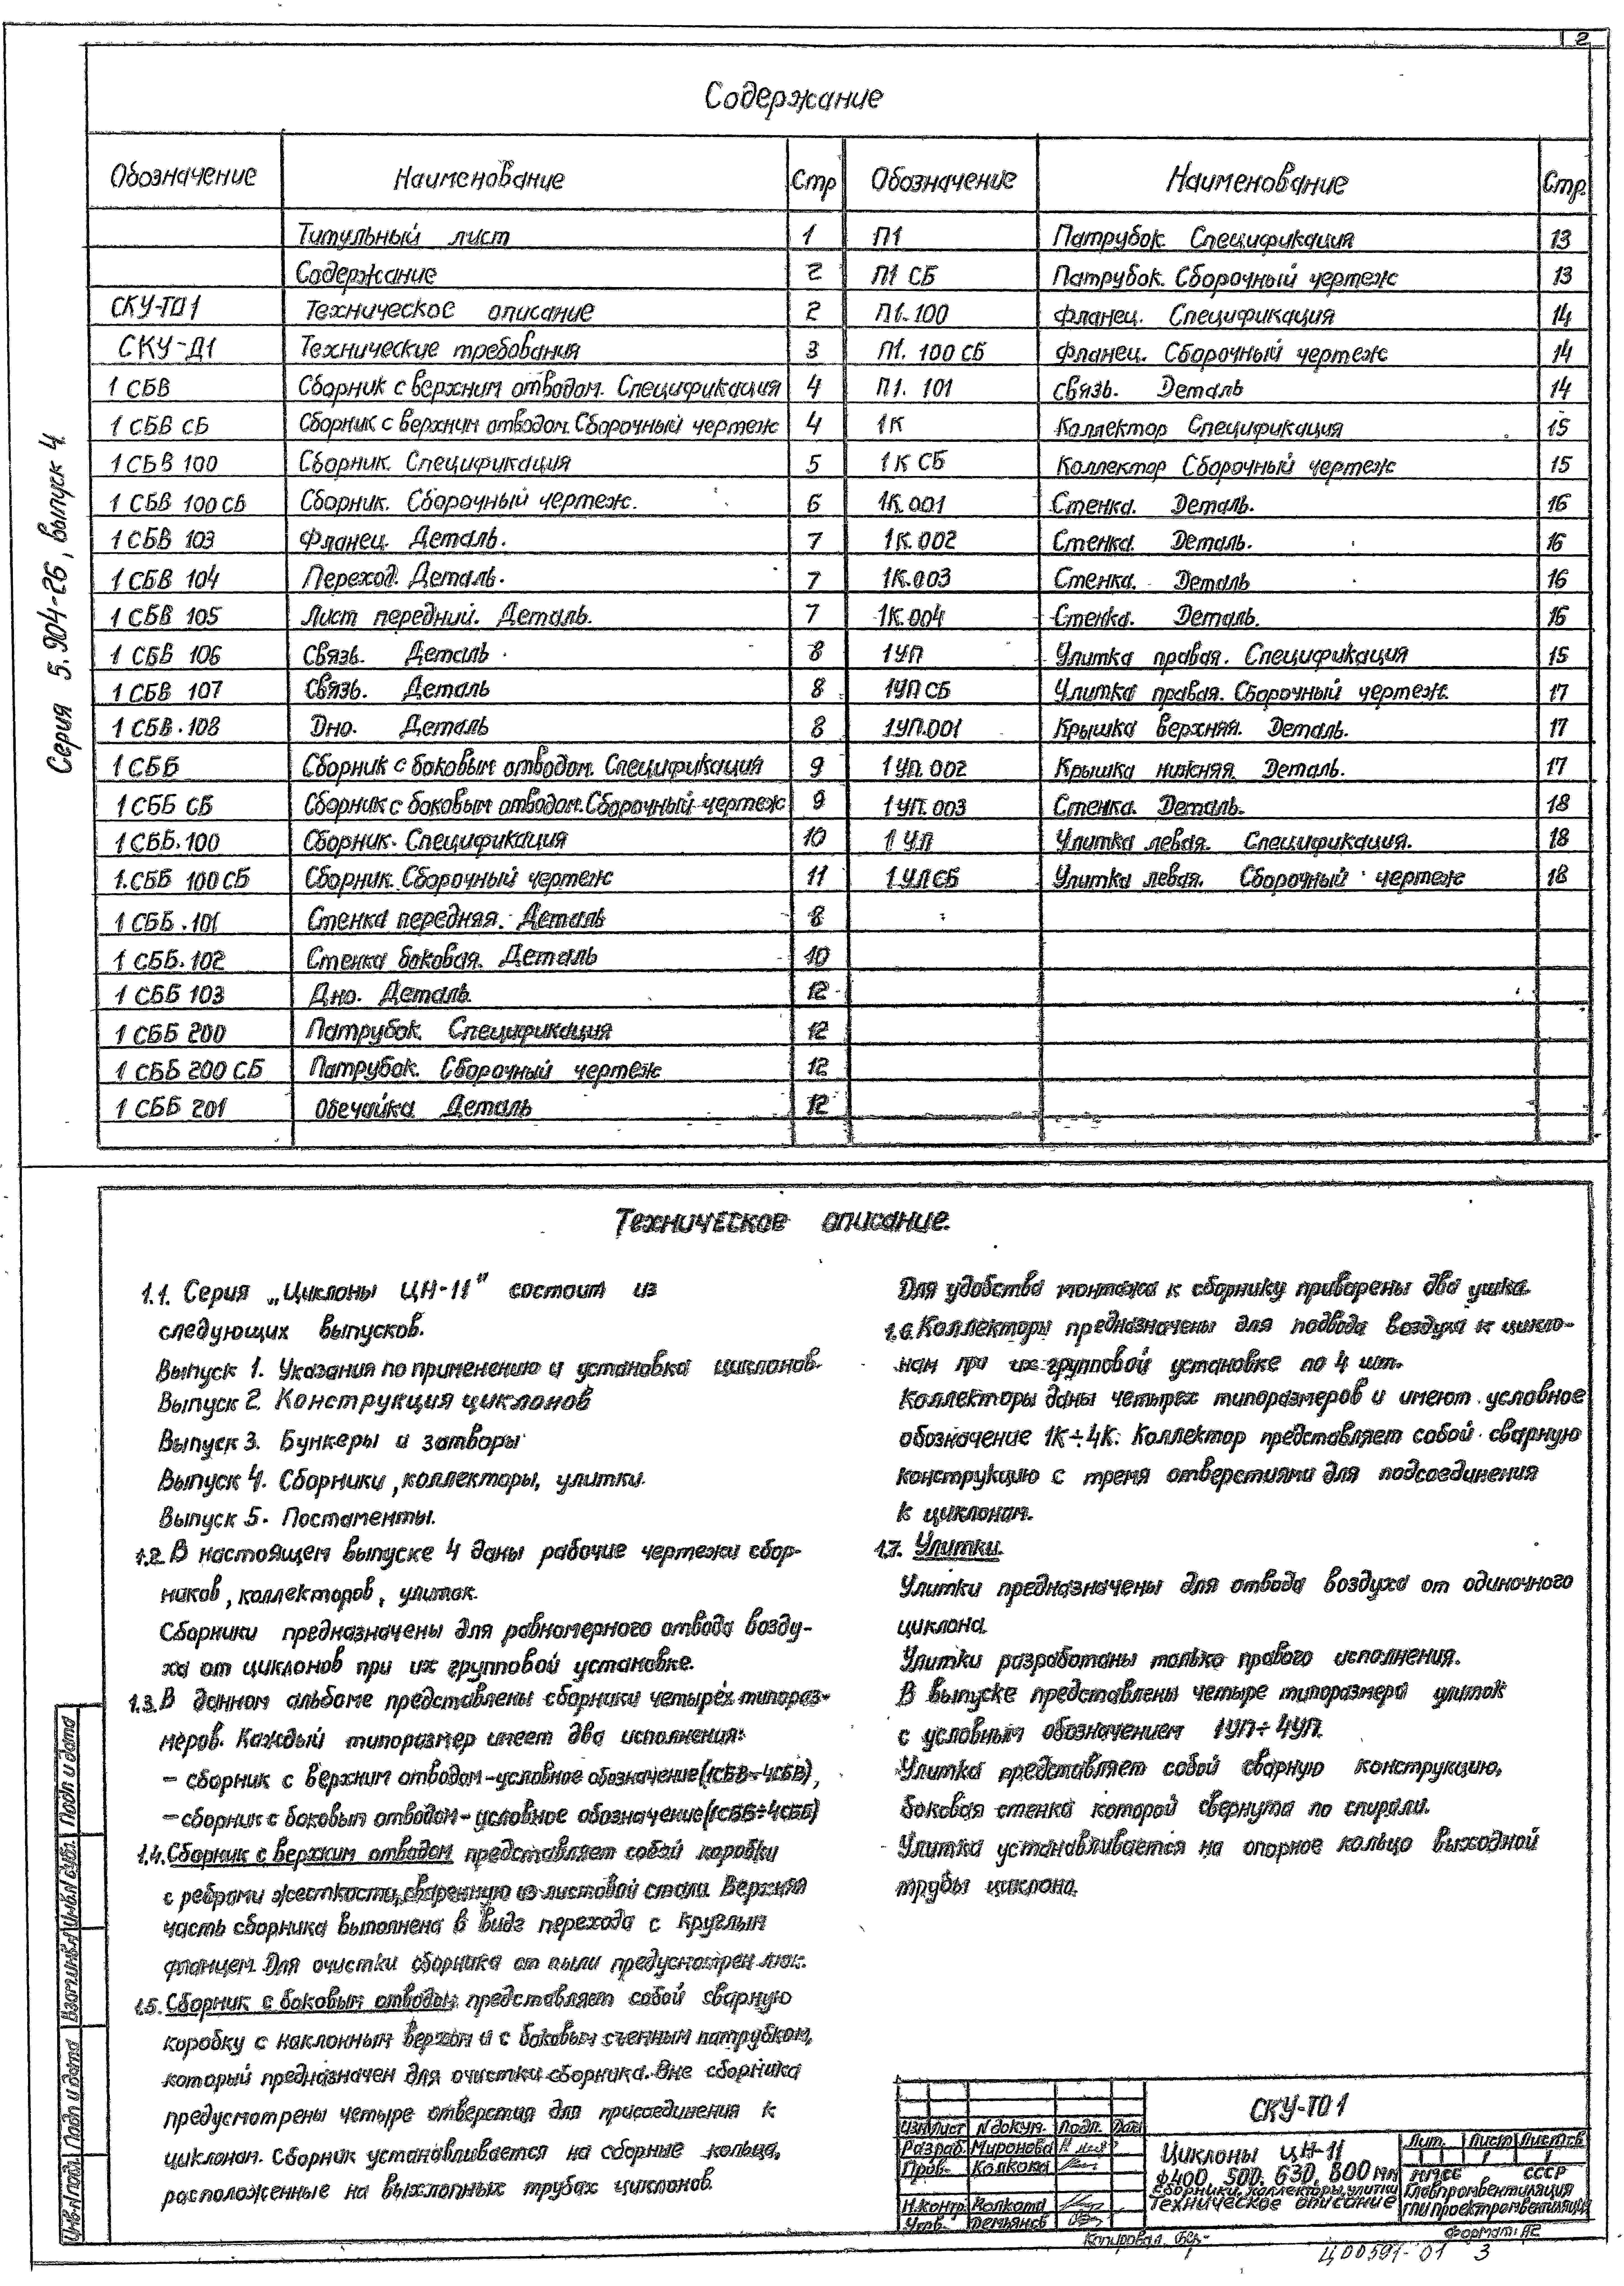 2
Содержание
Серия 5.904-26, выпуск 4
Обозначение Наименование Стр Обозначение Наименование Стр.
Титульный лист 1 П1 Патрубок Спецификация 13
Содержание 2 П1 СБ Патрубок. Сборочный чертеж 13
СКУ-ТО1 Техническое описание 2 П1.100 Фланец. Спецификация 14
СКУ-Д1 Технические требования 3 П1. 100 СБ Фланец. Сборочный чертеж 14
1 СБВ Сборник с верхним отводом. Спецификация 4 П1. 101 Связь. Деталь 14
1 СБВ СБ Сборник с верхним отводом. Сборочный чертеж 4 1К Коллектор Спецификация 15
1 СБВ 100 Сборник. Спецификация 5 1К СБ Коллектор Сборочный чертеж 15
1 СБВ 100 СБ Сборник. Сборочный чертеж. 6 1К.001 Стенка. Деталь. 16
1 СБВ 103 Фланец. Деталь. 7 1К.002 Стенка. Деталь. 16
1 СБВ 104 Переход. Деталь. 7 1К.003 Стенка. Деталь 16
1 СБВ 105 Лист передний. Деталь. 7 1К.004 Стенка. Деталь. 16
1 СБВ 106 Связь. Деталь 8 1УП Улитка правая. Спецификация 15
1 СБВ 107 Связь. Деталь 8 1УП СБ Улитка правая. Сборочный чертеж. 17
1 СБВ.108 Дно. Деталь 8 1УП.001 Крышка верхняя. Деталь. 17
1 СББ Сборник с боковым отводом. Спецификация 9 1УП.002 Крышка нижняя Деталь. 17
1 СББ СБ Сборник с боковым отводом. Сборочный чертеж 9 1УП.003 Стенка. Деталь. 18
1 СББ.100 Сборник. Спецификация 10 1 УЛ Улитка левая. Спецификация. 18
1.СББ 100 СБ Сборник. Сборочный чертеж 11 1 УЛ СБ Улитка левая. Сборочный чертеж 18
1 СББ.101 Стенка передняя. Деталь 8
1 СББ.102 Стенка боковая. Деталь 10
1 СББ 103 Дно. Деталь 12
1 СББ 200 Патрубок. Спецификация 12
1 СББ 200 СБ Патрубок. Сборочный чертеж 12
1 СББ 201 Обечайка Деталь 12
Техническое описание.
1.1. Серия „Циклоны ЦН-11" состоит из
следующих выпусков.
Выпуск 1. Указания по применению и установка циклонов.
Выпуск 2. Конструкция циклонов
Выпуск 3. Бункеры и затворы
Выпуск 4. Сборники, коллекторы, улитки.
Выпуск 5. Постаменты.
1.2. В настоящем выпуске 4 даны рабочие чертежи сбор-
ников, коллекторов, улиток.
Сборники предназначены для равномерного отвода возду-
ха от циклонов при их групповой установке.
1.3. В данном альбоме представлены сборники четырех типораз-
меров. Каждый типоразмер имеет два исполнения:
- сборник с верхним отводом-условное обозначение (1СБВ÷4СБВ),
- сборник с боковым отводом-условное обозначение (1СББ÷4СББ)
1.4. Сборник с верхним отводом представляет собой коробку
с ребрами жесткости, сваренную из листовой стали. Верхняя
часть сборника выполнена в виде перехода с круглым
фланцем. Для очистки сборника от пыли предусмотрен люк.
1.5. Сборник с боковым отводом представляет собой сварную
коробку с наклонным верхом и с боковым съемным патрубком,
который предназначен для очистки сборника. Вне сборника
предусмотрены четыре отверстия для присоединения к
циклонам. Сборник устанавливается на сборные кольца,
расположенные на выхлопных трубах циклонов.
Для удобства монтажа к сборнику приварены два ушка.
1.6. Коллекторы предназначены для подвода воздуха к цикло-
нам при их групповой установке по 4 шт.
Коллекторы даны четырех типоразмеров и имеют условное
обозначение 1К÷4К. Коллектор представляет собой сварную
конструкцию с тремя отверстиями для подсоединения
к циклонам.
1.7. Улитки.
Улитки предназначены для отвода воздуха от одиночного
циклона.
Улитки разработаны только правого исполнения.
В выпуске представлены четыре типоразмера улиток
с условным обозначением 1УП÷4УП.
Улитка представляет собой сварную конструкцию,
боковая стенка которой свернута по спирали.
Улитка устанавливается на опорное кольцо выходной
трубы циклона.
Инв.N подл. Подп и дата Взам.инв.N Инв.N дубл. Подп и дата
СКУ-ТО1
Изм Лист N докум. Подп. Дата
Разраб. Миронова
Пров. Колкова
Н.контр. Колкова
Утв. Демьянов
Циклоны ЦН-11
ф400, 500, 630, 800 мм
Сборники, коллекторы, улитки
Техническое описание
Лит. Лист Листов
1 1
СССР
Главпромвентиляция
Копировал.
Формат: А2
Ц00591-01 3